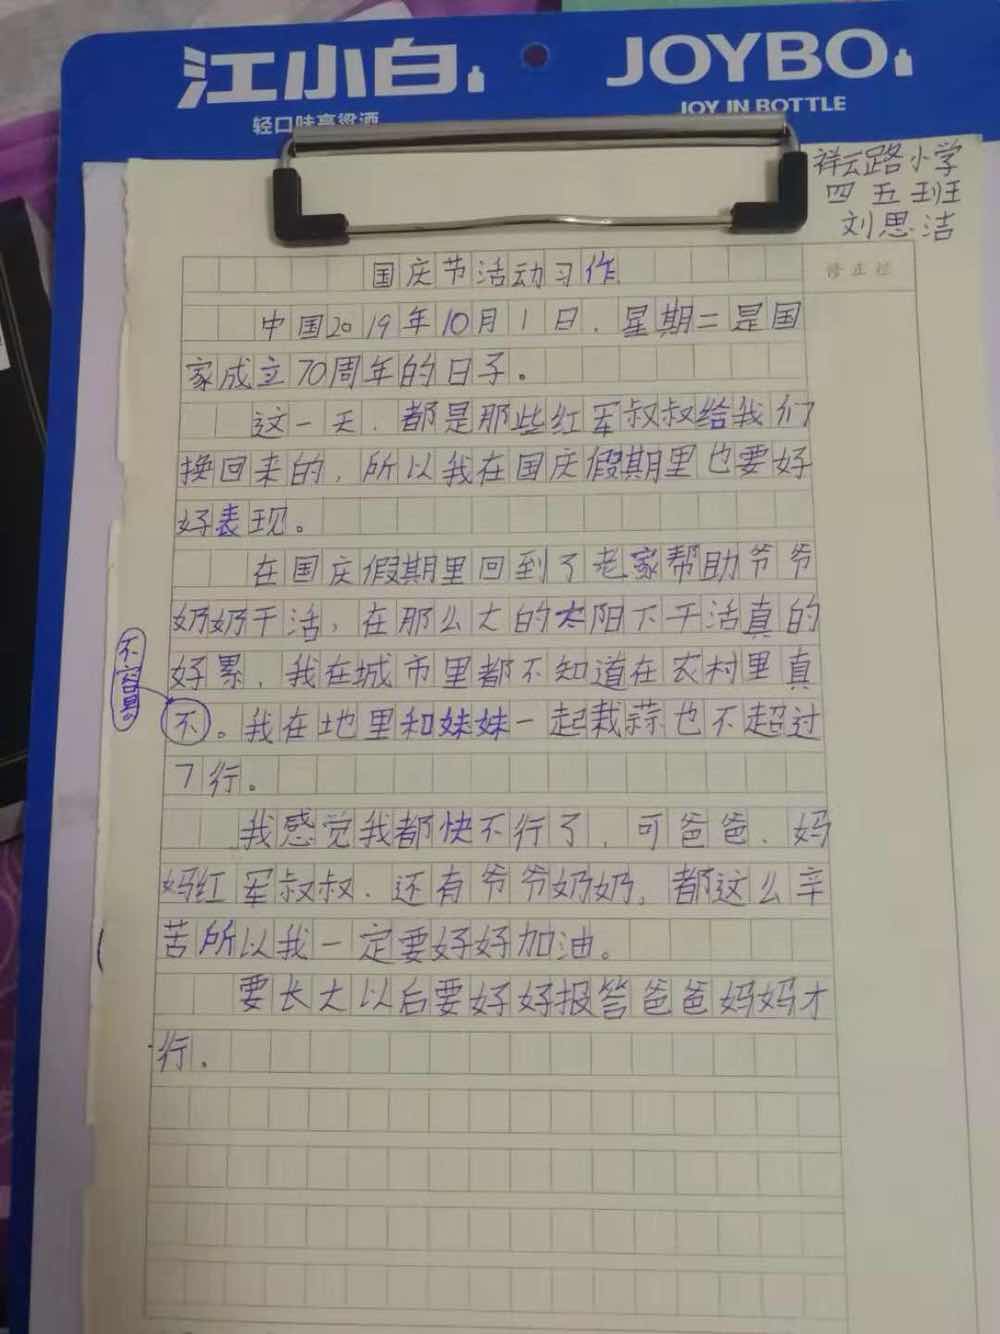 江小白 JOYBO
轻口味高粱酒 JOY IN BOTTLE
祥云路小学
四五班
刘思洁
修正栏
国庆节活动习作
中国2019年10月1日，星期二是国
家成立70周年的日子。
这一天，都是那些红军叔叔给我们
换回来的，所以我在国庆假期里也要好
好表现。
在国庆假期里回到了老家帮助爷爷
奶奶干活，在那么大的太阳下干活真的
好累，我在城市里都不知道在农村里真
不容易
不。我在地里和妹妹一起栽蒜也不超过
7行。
我感觉我都快不行了，可爸爸、妈
妈红军叔叔、还有爷爷奶奶，都这么辛
苦所以我一定要好好加油。
要长大以后要好好报答爸爸妈妈才
行。